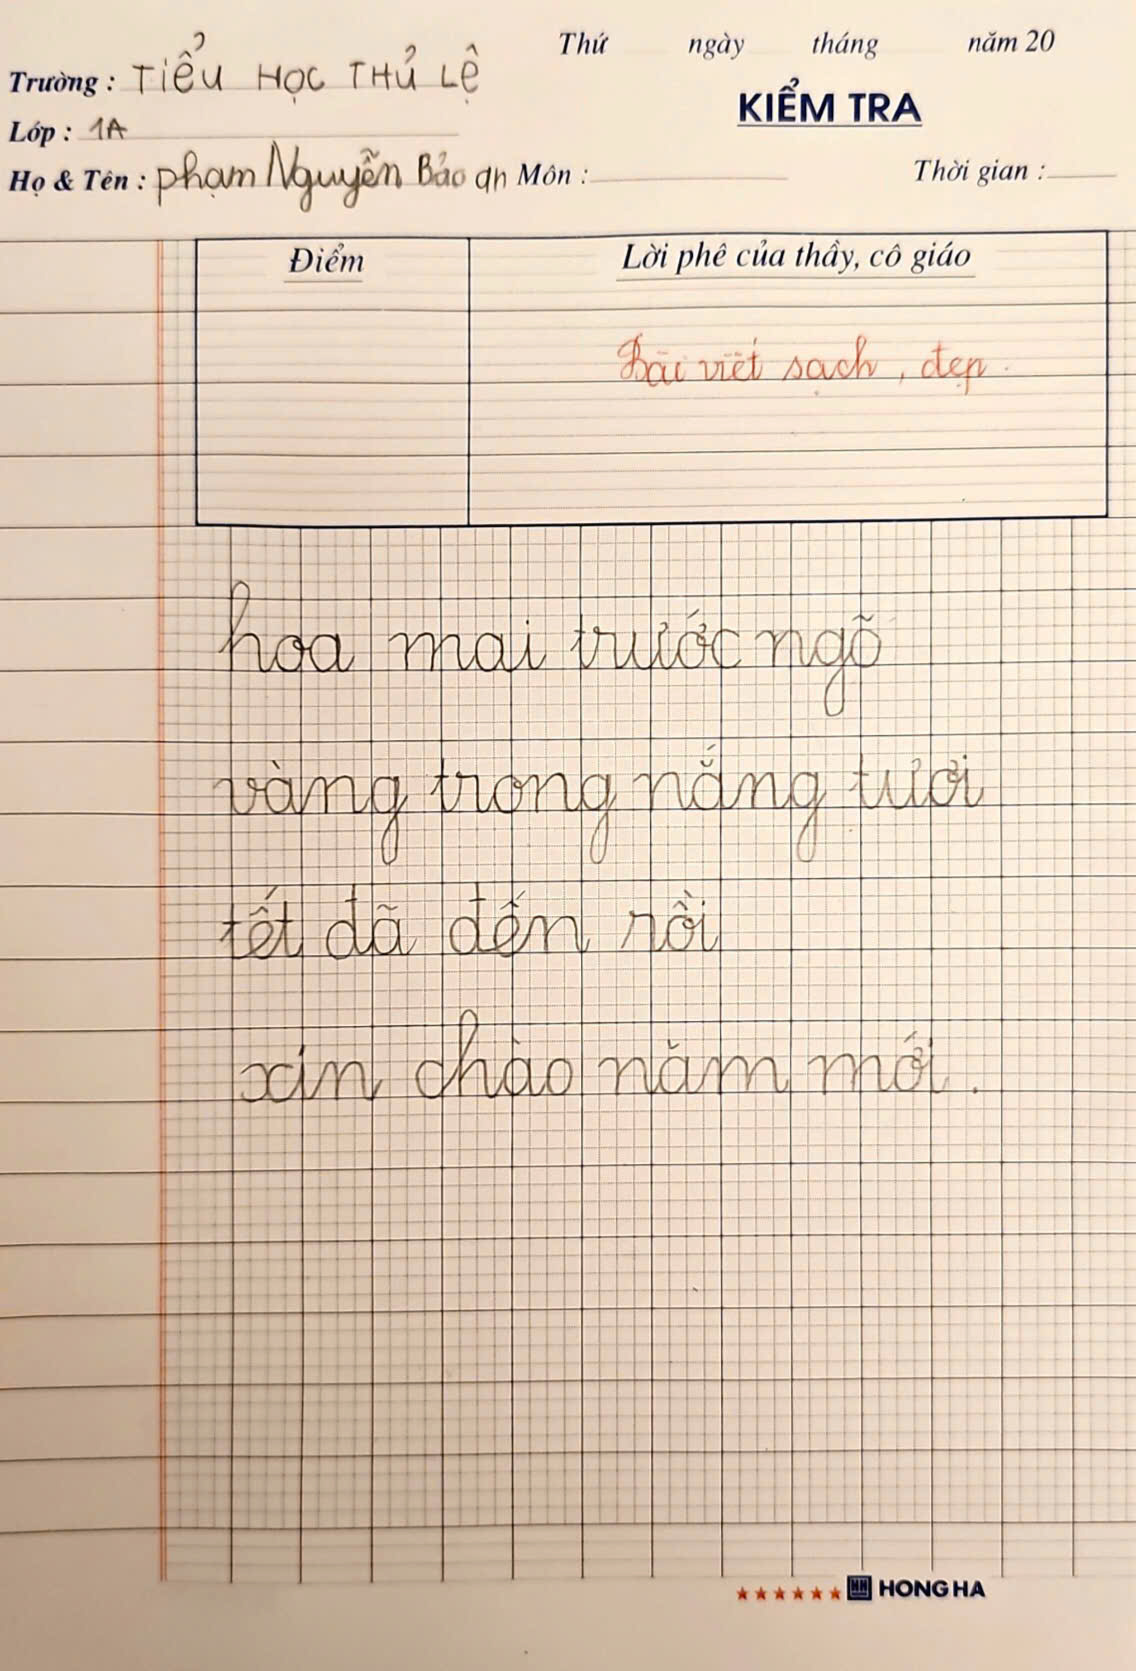 Thứ ngày tháng năm 20
Trường : TIỂU HỌC THỦ LỆ
KIỂM TRA
Lớp : 1A
Họ & Tên : phạm Nguyễn Bảo an Môn : Thời gian :
Điểm
Lời phê của thầy, cô giáo
Bài viết sạch, đẹp.
hoa mai trước ngõ
vàng trong nắng tươi
tết đã đến rồi
xin chào năm mới.
HONG HA